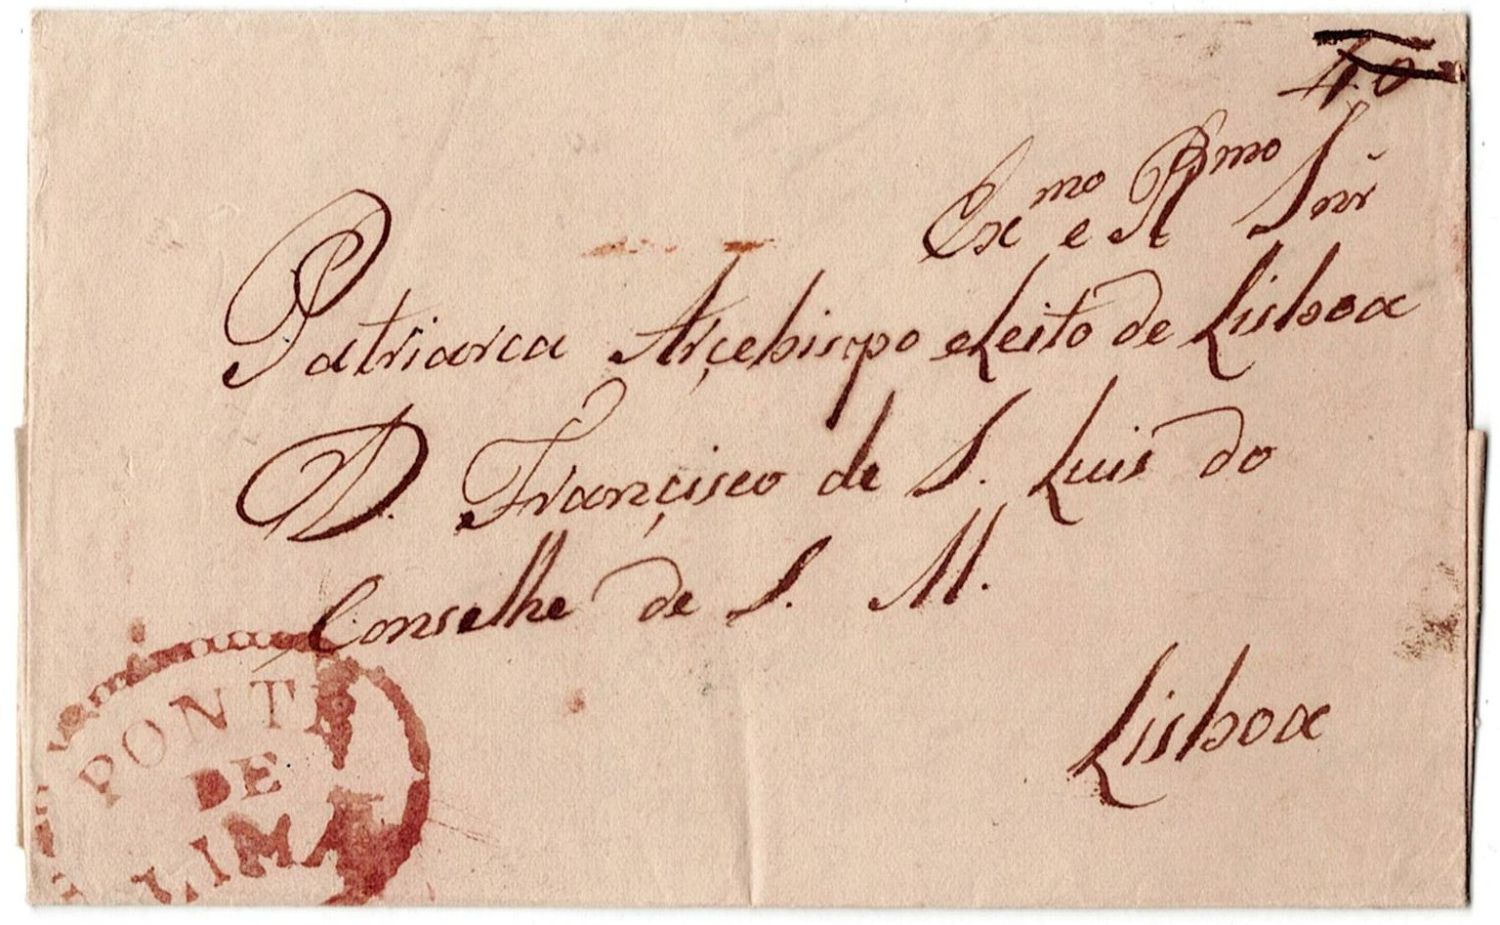 40
Exmo e Rmo Snr
Patriarca Arçebispo eleito de Lisboa
D. Françisco de S. Luis do
Conselhe de S. M.
Lisboa
PONTE
DE
LIMA